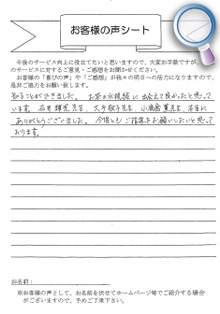 お客様の声シート
今後のサービス向上に役立てたいと思いますので、大変お手数ですが、
のサービスに対するご意見・ご感想をお聞かせください。
お客様の「喜びの声」や「ご感想」が我々の明日への活力になりますので、是
非ご協力をお願い致します。
知ることができました。お茶の水現経に出会えて良かったと思って
います。石井輝光先生、大手敬子先生、小廣薫先生、本当に
ありがとうございました。今後ともご指導をお願いしたいと思って
おります。
お名前：
※お客様の声として、お名前を伏せてホームページ等でご紹介する場合
がございますので、予めご了承下さい。